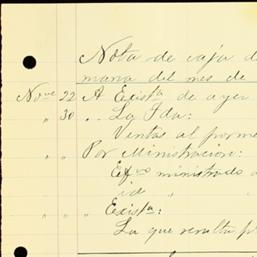 Nota de caja d
mana del mes de
Nove 22 A Existª de ayer
" 30 " " La Fda:
Ventas al porme
" " Por Ministracion:
Efvo ministrado a
id " "
" " Existª:
La que resulta p